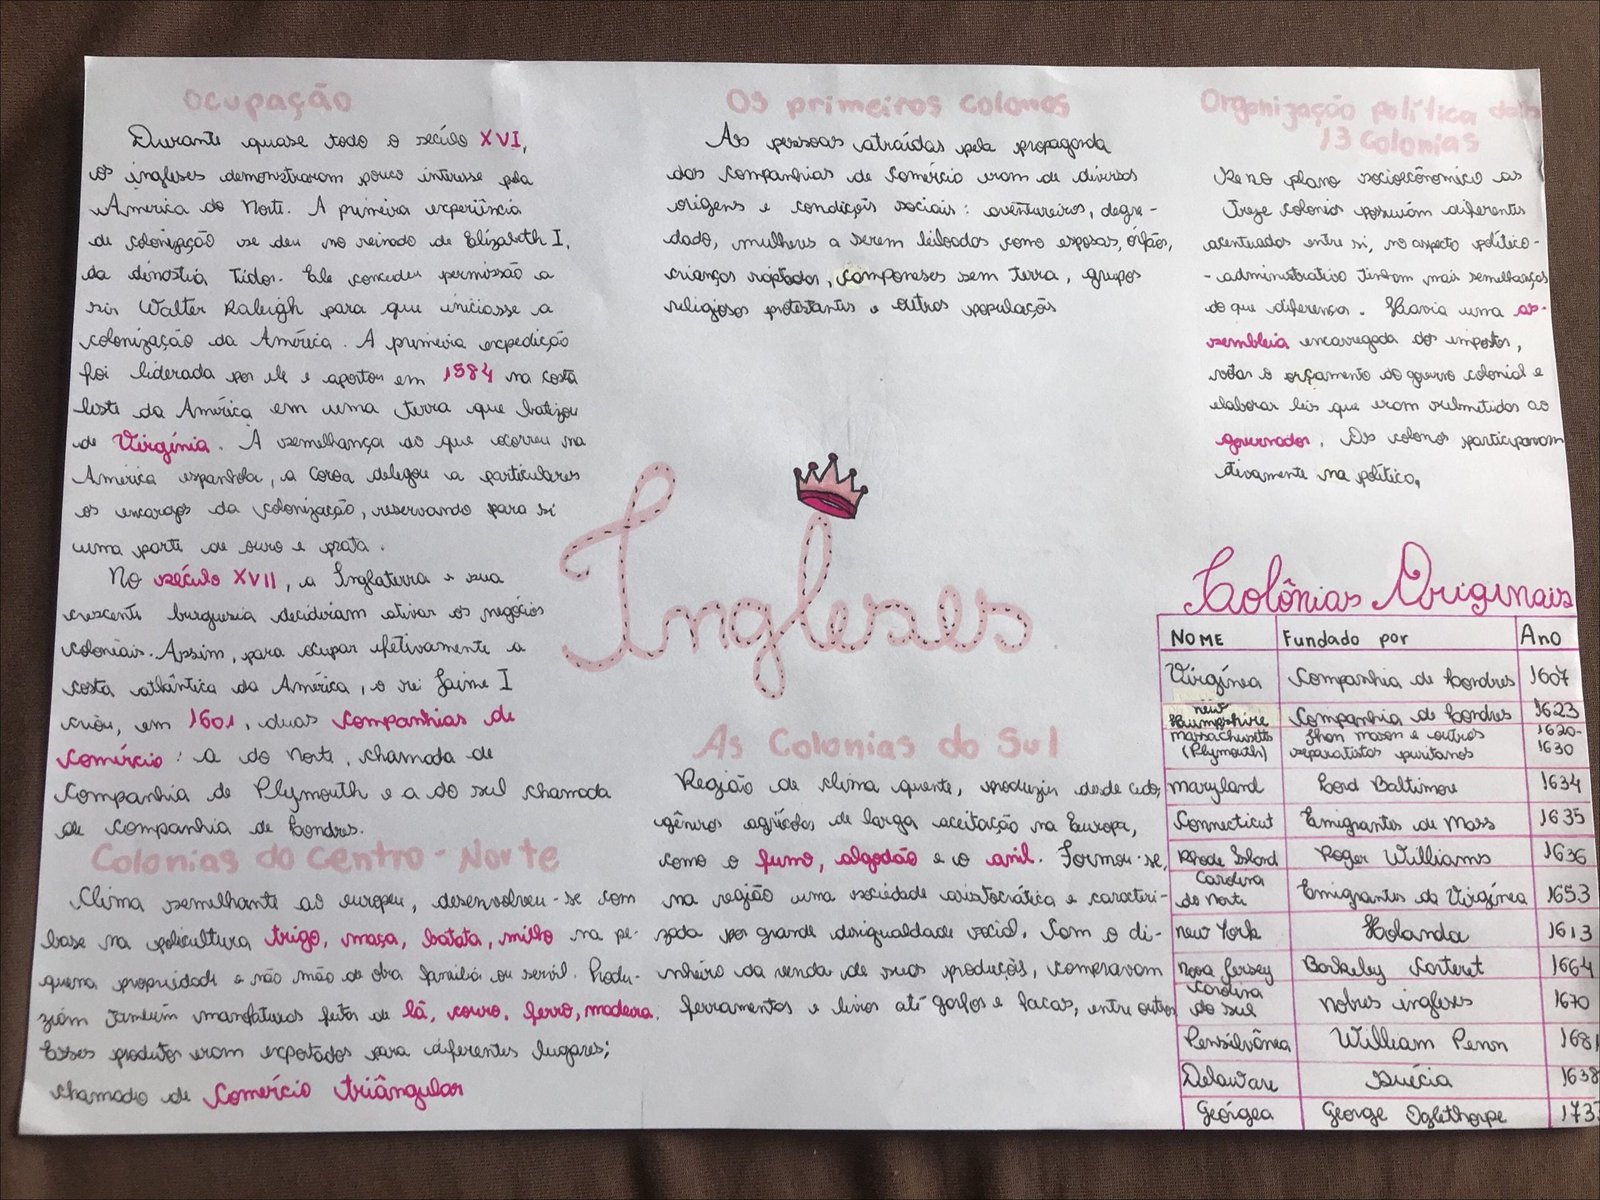 Ocupação
Durante quase todo o século XVI,
os ingleses demonstraram pouco interesse pela
América do Norte. A primeira experiência
de colonização se deu no reinado de Elizabeth I,
da dinastia Tudor. Ele concedeu permissão a
sir Walter Raleigh para que iniciasse a
colonização da América. A primeira expedição
foi liderada por ele e aportou em 1584 na costa
leste da América em uma terra que batizou
de Virgínia. A semelhança ao que ocorreu na
América espanhola, a Coroa delegou a particulares
os encargos da colonização, reservando para si
uma parte de ouro e prata.
No século XVII, a Inglaterra e sua
crescente burguesia decidiram ativar os negócios
coloniais. Assim, para ocupar efetivamente a
costa atlântica da América, o rei Jaime I
criou, em 1601, duas companhias de
comércio: a do Norte, chamada de
Companhia de Plymouth e a do sul chamada
de companhia de Londres.
Colonias do Centro-Norte
Clima semelhante ao europeu, desenvolveu-se com
base na policultura trigo, maça, batata, milho na pe-
quena propriedade e não mão de obra familiá ou servil. Produ-
ziam também manofaturas feitas de lã, couro, ferro, madeira.
Esses produtos eram exportados para diferentes lugares;
chamado de Comércio triângular
Os primeiros colonos
As pessoas atraídas pela propaganda
das companhias de comércio eram de diversas
origens e condições sociais: aventureiros, degre-
dado, mulheres a serem leiloadas como esposas, órfãos,
crianças raptadas, camponeses sem terra, grupos
religiosos protestantes e outros populações
Ingleses
As Colonias do Sul
Região de clima quente, produziu desde cedo,
gêneros agrícolas de larga aceitação na Europa,
como o fumo, algodão e o anil. Formou-se,
na região uma sociedade aristocrática e caracteri-
zada por grande desigualdade social. Com o di-
nheiro da venda de suas produçõs, compravam
ferramentas e livros até garfos e facas, entre outros
Organização política das
13 Colonias
Se no plano socioecônomico as
Treze colonias possuíam diferentes
acentuadas entre si, no aspecto político-
-administrativo tinham mais semelhanças
do que diferença. Havia uma as-
sembleia encarregada dos impostos,
votar o orçamento do governo colonial e
elaborar leis que eram submetidas ao
governador. Os colonos participavam
ativamente na política.
Colônias Originais
Nome Fundado por Ano
Virgínea Companhia de Londres 1607
New Humpshire Companhia de Londres 1623
Massachusetts (Plymouth) Jhon mason e outros separatistas puritanos 1620-1630
Maryland Lord Baltimore 1634
Connecticut Emigrantes de Mass 1635
Rhode Island Roger Williams 1636
Carolina do Norte Emigrantes da Virgínea 1653
New York Holanda 1613
Nova Jersey Barkeley Carteret 1664
Carolina do sul Nobres ingleses 1670
Pensilvânea William Penn 1681
Delaware Suécia 1638
Geórgea George Oglethorpe